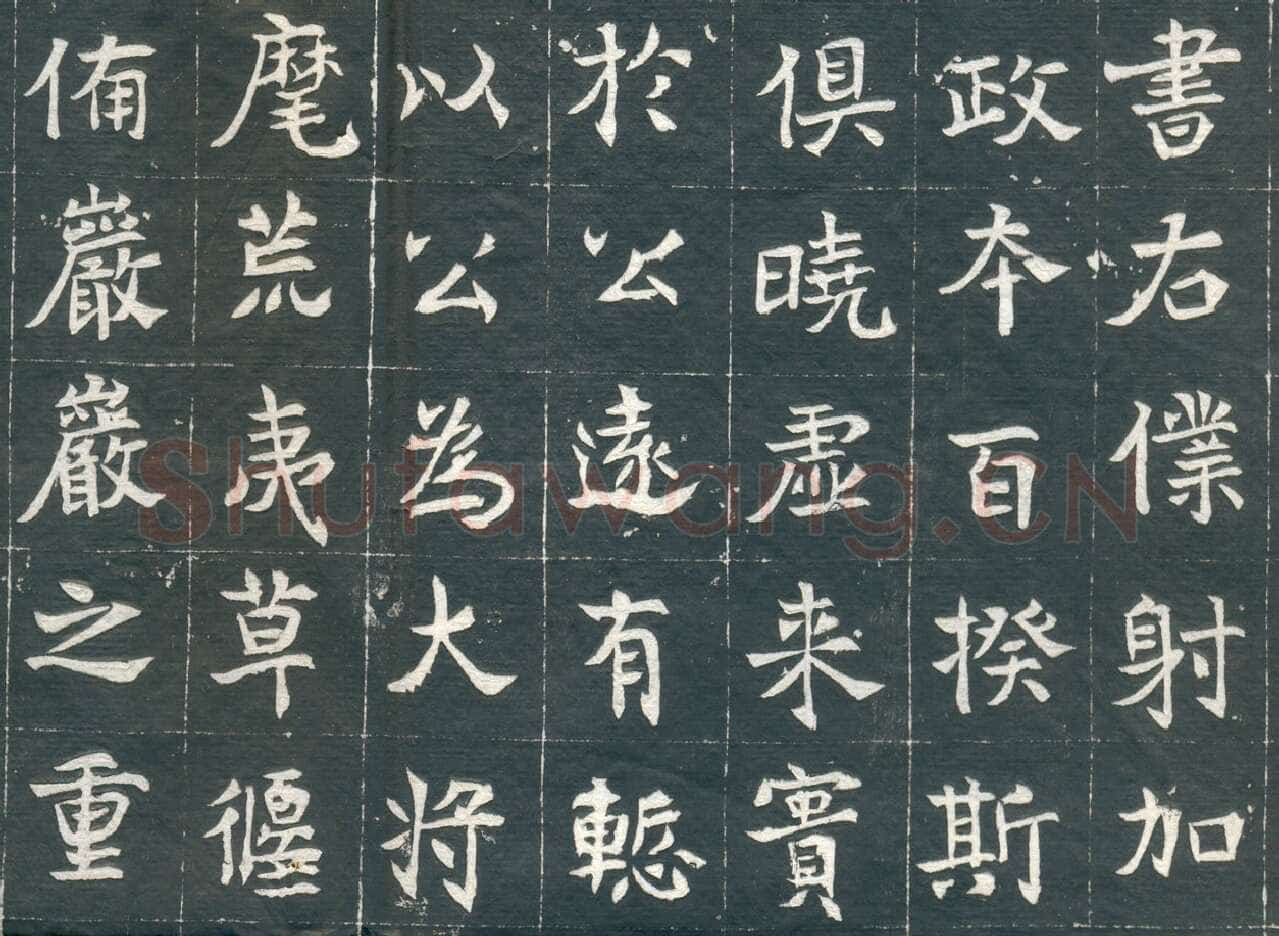 書右僕射加
政本百揆斯
俱曉虛来實
於公遠有慙
以公為大將
麾荒夷草偃
備巖巖之重
Shufawang.CN